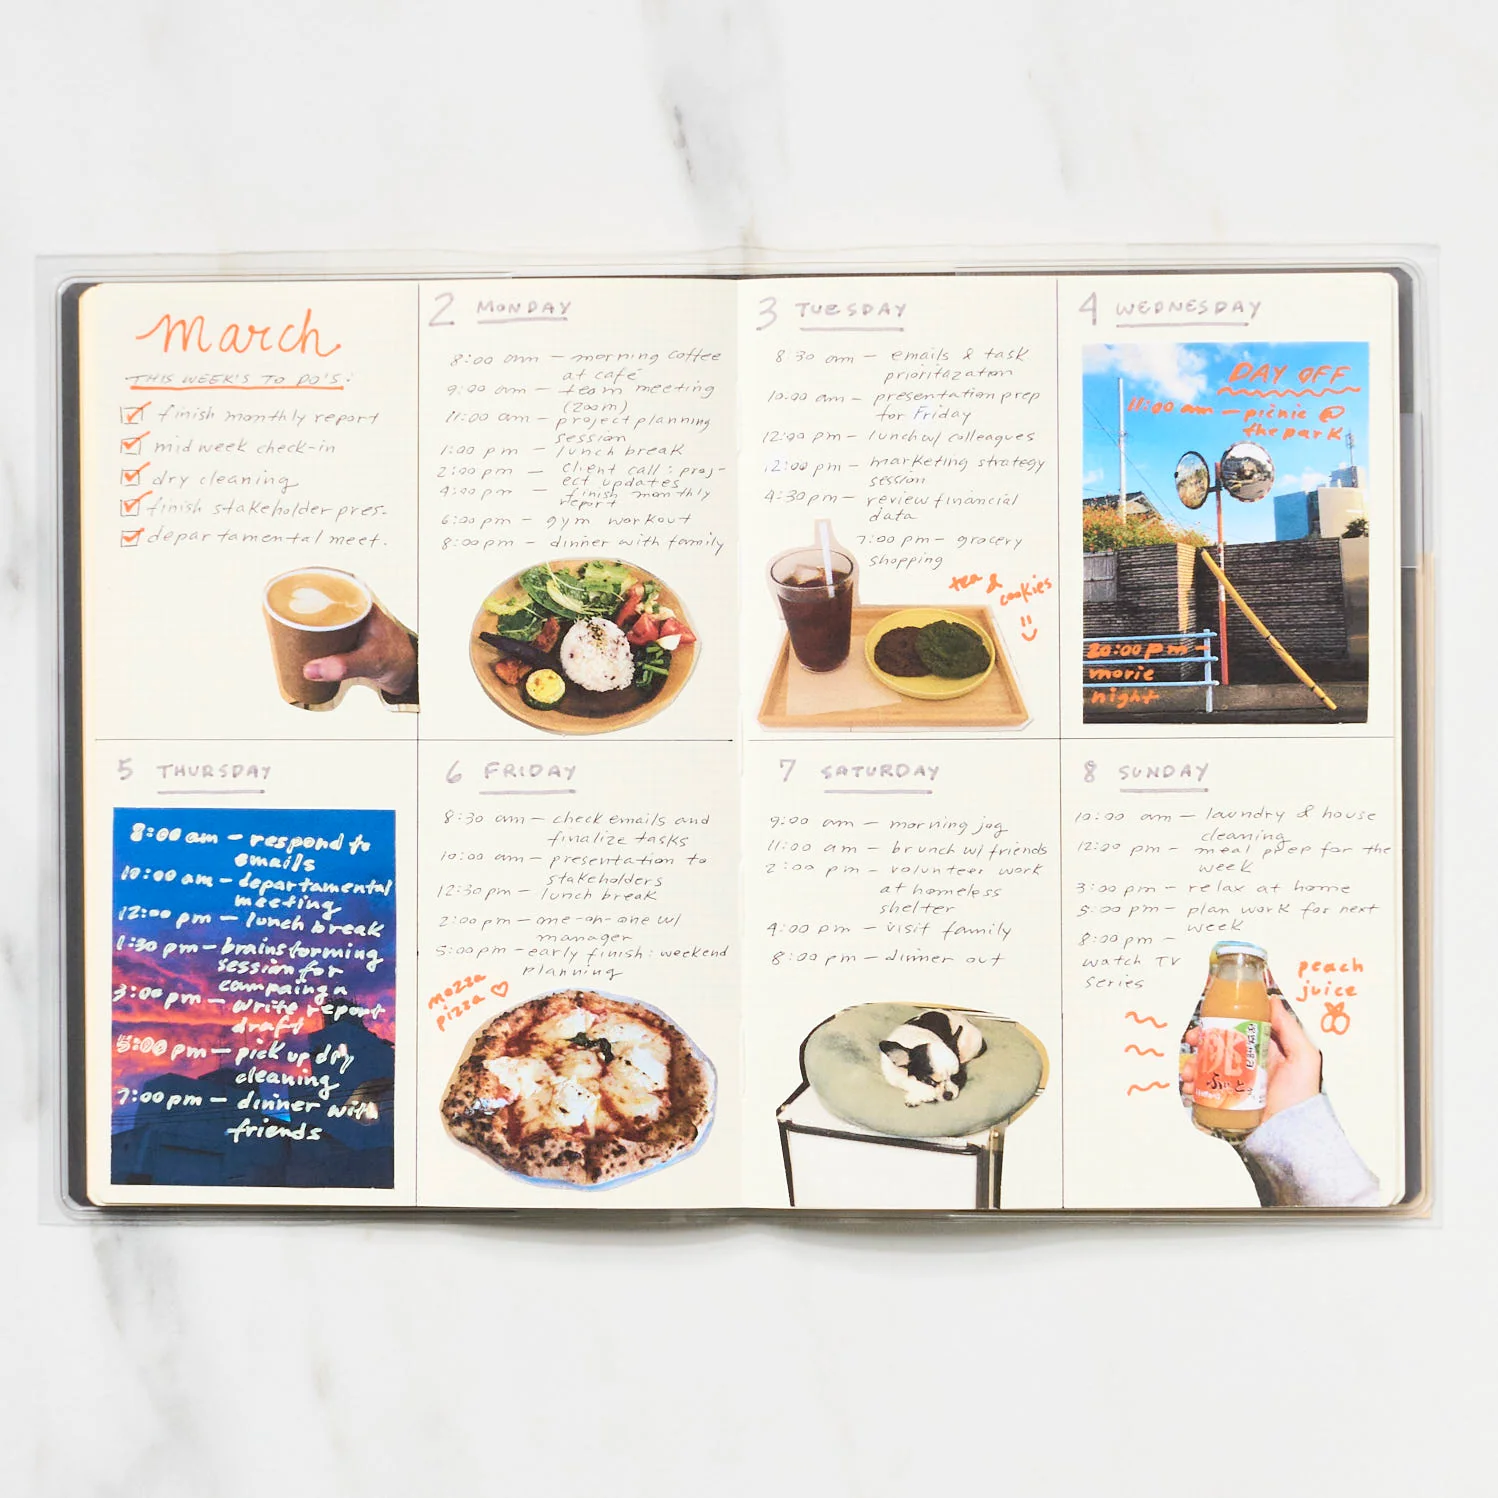 March
THIS WEEK'S TO DO'S:
finish monthly report
mid week check-in
dry cleaning
finish stakeholder pres.
departamental meet.
2 MONDAY
8:00 am — morning coffee
at café
9:00 am — team meeting
(zoom)
11:00 am — project planning
session
1:00 pm — lunch break
2:00 pm — client call: proj-
ect updates
4:00 pm — finish monthly
report
6:00 pm — gym workout
8:00 pm — dinner with family
3 TUESDAY
8:30 am — emails & task
prioritazation
10:00 am — presentation prep
for Friday
12:00 pm — lunch w/ colleagues
12:00 pm — marketing strategy
session
4:30 pm — review financial
data
7:00 pm — grocery
shopping
tea &
cookies
4 WEDNESDAY
DAY OFF
11:00 am — picnic @
the park
20:00 pm —
movie
night
5 THURSDAY
8:00 am — respond to
emails
10:00 am — departamental
meeting
12:00 pm — lunch break
1:30 pm — brainstorming
session for
campaingn
3:00 pm — write report
draft
5:00 pm — pick up dry
cleaning
7:00 pm — dinner with
friends
6 FRIDAY
8:30 am — check emails and
finalize tasks
10:00 am — presentation to
stakeholders
12:30 pm — lunch break
2:00 pm — one-on-one w/
manager
5:00 pm — early finish: weekend
planning
mozza
pizza
7 SATURDAY
9:00 am — morning jog
11:00 am — brunch w/ friends
2:00 pm — volunteer work
at homeless
shelter
4:00 pm — visit family
8:00 pm — dinner out
8 SUNDAY
10:00 am — laundry & house
cleaning
12:00 pm — meal prep for the
week
3:00 pm — relax at home
5:00 pm — plan work for next
week
8:00 pm —
watch TV
series
peach
juice
桃